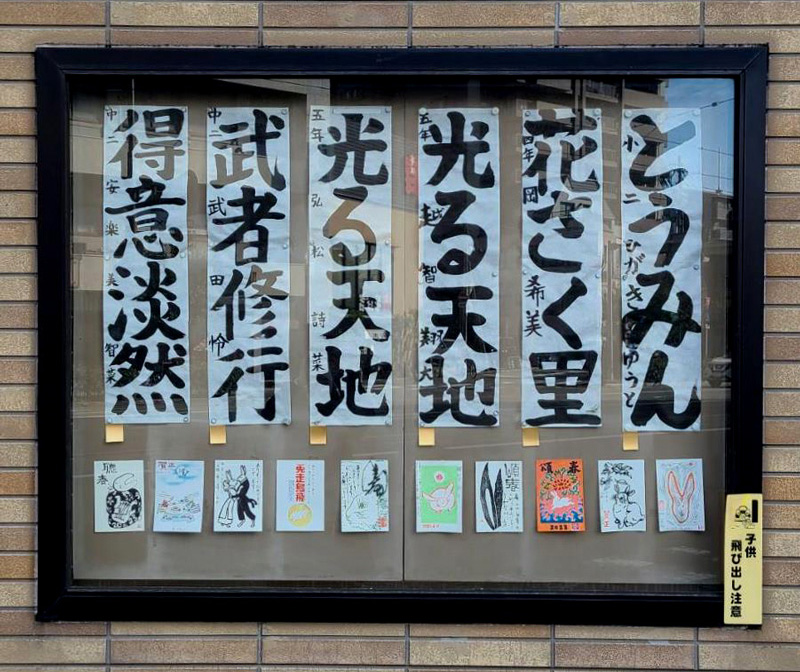 とうみん
小二 ひがき ゆうと
花さく里
四年 岡 希美
光る天地
五年 越智 翔大
光る天地
五年 弘松 詩菜
武者修行
中二 武田 怜
得意淡然
中二 安楽 美智菜
賀正
頌春
2023
寿
兎走烏飛
賀正
聴春
子供
飛び出し注意